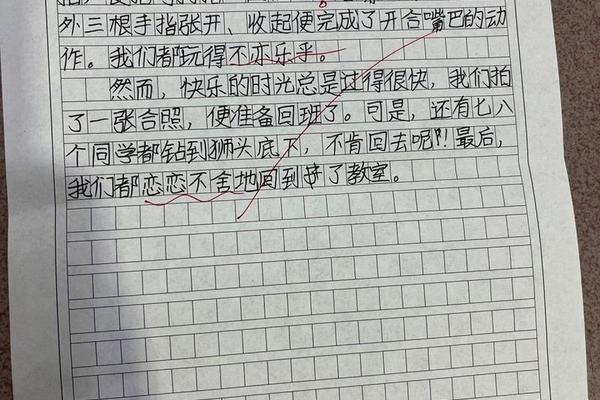 外三根手指张开、收起便完成了开合嘴巴的动
作。我们都玩得不亦乐乎。
然而，快乐的时光总是过得很快，我们拍
了一张合照，便准备回班了。可是，还有七八
个同学都钻到狮头底下，不肯回去呢！最后，
我们都恋恋不舍地回到了教室。